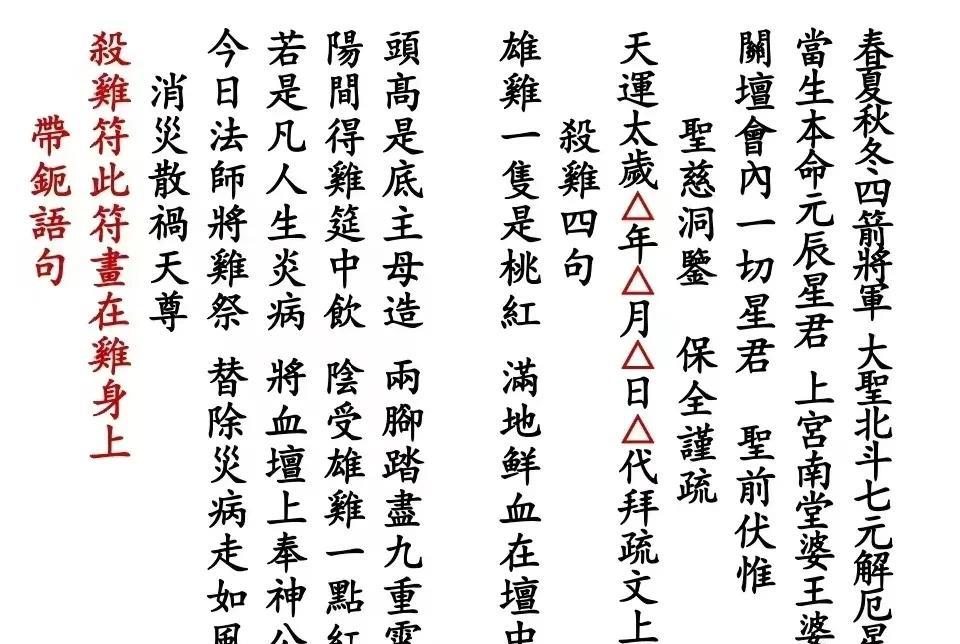 春夏秋冬四箭將軍 大聖北斗七元解厄星
當生本命元辰星君 上宮南堂婆王婆
關壇會內一切星君 聖前伏惟
聖慈洞鑒 保全謹疏
天運太歲△年△月△日△代拜疏文上
殺雞四句
雄雞一隻是桃紅 滿地鲜血在壇中
頭髙是底主母造 兩腳踏盡九重霄
陽間得雞筵中飲 陰受雄雞一點紅
若是凡人生炎病 將血壇上奉神公
今日法師將雞祭 替除災病走如風
消災散禍天尊
殺雞符此符畫在雞身上
帶鈪語句